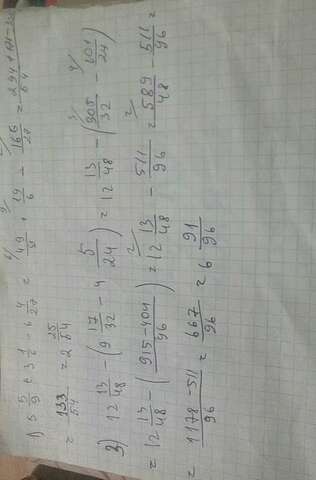 1) 5 5/9 + 3 1/6 - 6 4/27 = 49/9 + 19/6 - 166/27 =
= 133/54 = 2 25/54
3) 12 13/48 - (9 17/32 - 4 5/24) = 12 13/48 - (305/32 - 101/24)
= 12 13/48 - (915-404/96) = 12 13/48 - 511/96 = 589/48 - 511/96 =
= 1178-511/96 = 667/96 = 6 91/96